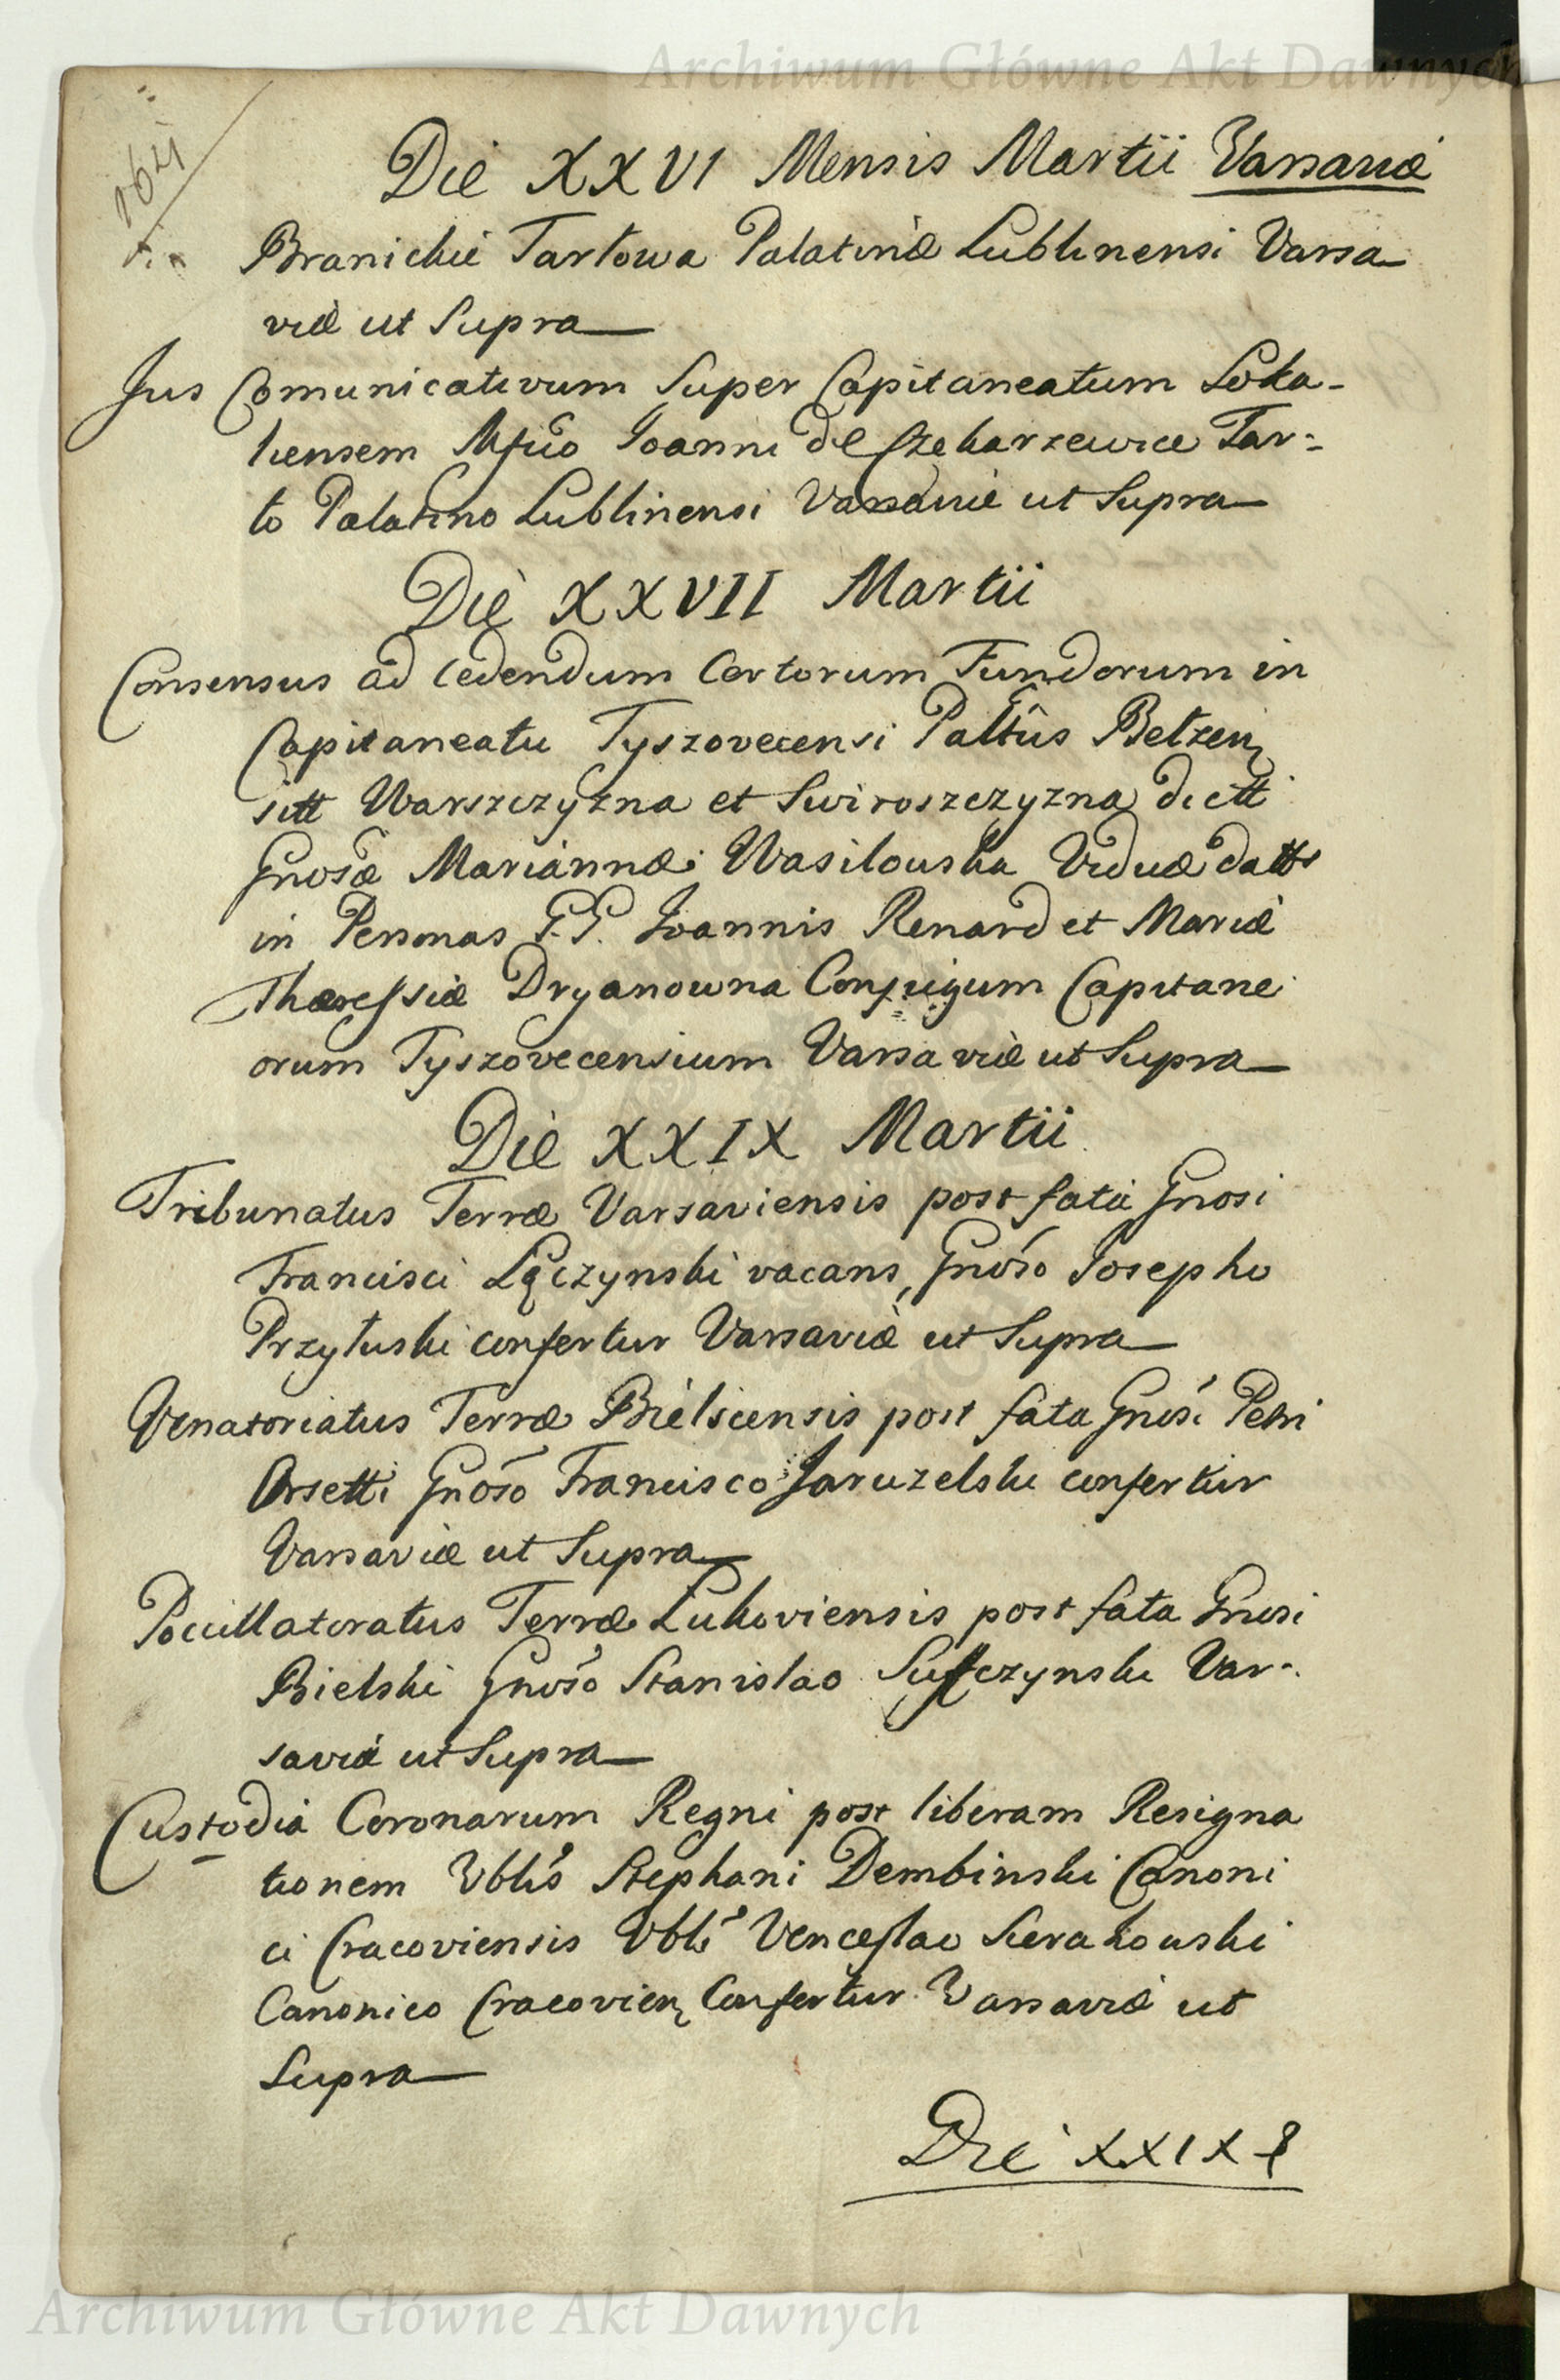 Archiwum Główne Akt Dawnych
164
Die XXVI Mensis Martii Varsaviæ
Branickie Tarłowa Palatinæ Lublinensi Varsa
viæ ut Supra
Jus Comunicativum Super Capitaneatum Soka-
liensem Mfico Joanni de Szekarzewice Tar-
ło Palatino Lublinensi Varsaviæ ut Supra
Die XXVII Martii
Consensus ad cedendum Certorum Fundorum in
Capitaneatu Tyszovecensi Palttûs Bełzen
sitt Warszczyzna et Swiroszczyzna dictt
Gnosæ Mariannæ Wasilouska Viduæ datts
in Personas G.G. Joannis Renard et Mariæ
Thæressiæ Dryanowna Conjugum Capitane
orum Tyszovecensium Varsaviæ ut Supra
Die XXIX Martii
Tribunatus Terræ Varsaviensis post fata Gnosi
Francisci Łączynski vacans, Gnoso Josepho
Przyłuski confertur Varsaviæ ut Supra
Venatoriatus Terræ Bielscensis post fata Gnosi Petri
Orsetti Gnoso Francisco Jaruzelski confertur
Varsaviæ ut Supra
Pocillatoratus Terræ Lukoviensis post fata Gnosi
Bielski Gnoso Stanislao Sufczynski Var-
saviæ ut Supra
Custodia Coronarum Regni post liberam Resigna
tionem Vblis Stephani Dembinski Canoni
ci Cracoviensis Vbli Venceslao Sierakouski
Canonico Cracovien Confertur Varsaviæ ut
Supra
Die XXIX
Archiwum Główne Akt Dawnych